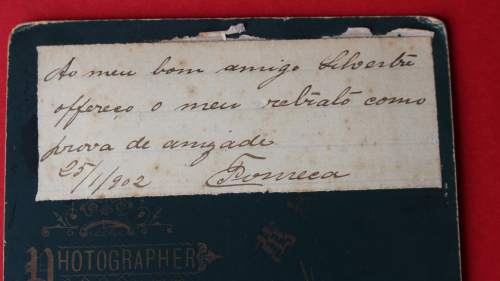 Ao meu bom amigo Silvestre
offereço o meu retrato como
prova de amizade
25/1/902 Fonseca
PHOTOGRAPHER